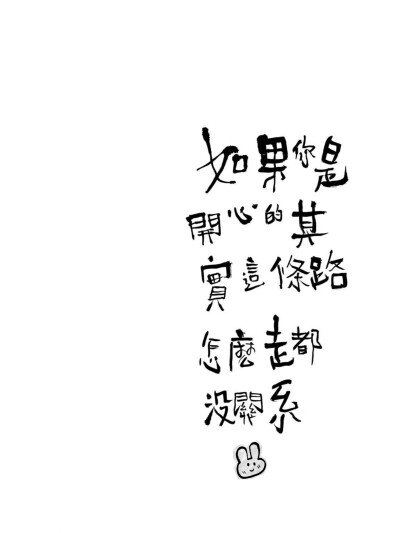 如果你是
開心的其
實這條路
怎麼走都
沒關系